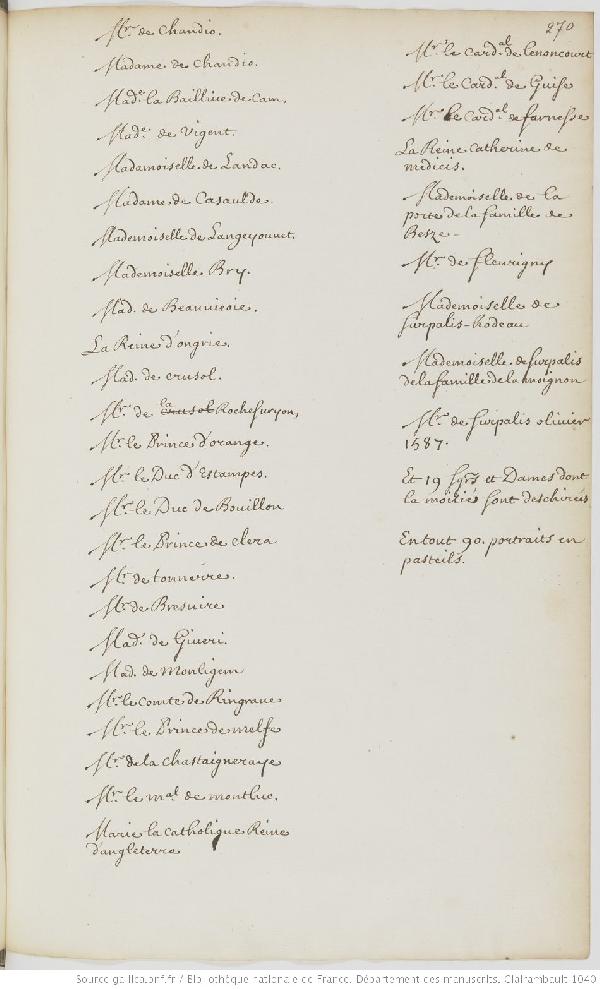 270
Mr. de Chandio.
Madame de Chandio.
Made. la Baillive de Cam.
Made. de Vigent.
Madamoiselle de Landac.
Madame de Casaulde.
Mademoiselle de Langeyouuet.
Mademoiselle Bry.
Mad. de Beauuieoie.
La Reine d'ongrie.
Mad. de crusol.
Mr. de la crusol Rochesuryon,
Mr. le Prince d'orange.
Mr. le Duc d'Estampes.
Mr. le Duc de Bouillon
Mr. le Prince de clera
Mr. de tonnerre.
Mr. de Bresuire
Made. de Giueri.
Mad. de Monligem
Mr. le comte de Ringraue
Mr. le Prince de melfe
Mr. de la chastaigneraye
Mr. le mal. de montluc.
Marie la catholique Reine
d'angleterre
Mr. le Card.al de Lenoncourt
Mr. le Card.al de Guise
Mr. le Card.al de farnesse
La Reine Catherine de
medicis.
Mademoiselle de la
porte de la famille de
Besze-
Mr. de fleurigny
Mademoiselle de
surpalis-Rodeau
Mademoiselle de surpalis
de la famille de lamoignon
Mr. de surpalis oliuier
1587.
Et 19 sgrs et Dames dont
la moitiés sont deschirées
En tout 90. portraits en
pasteils.
Source gallica.bnf.fr / Bibliothèque nationale de France. Département des manuscrits. Clairambault 1040